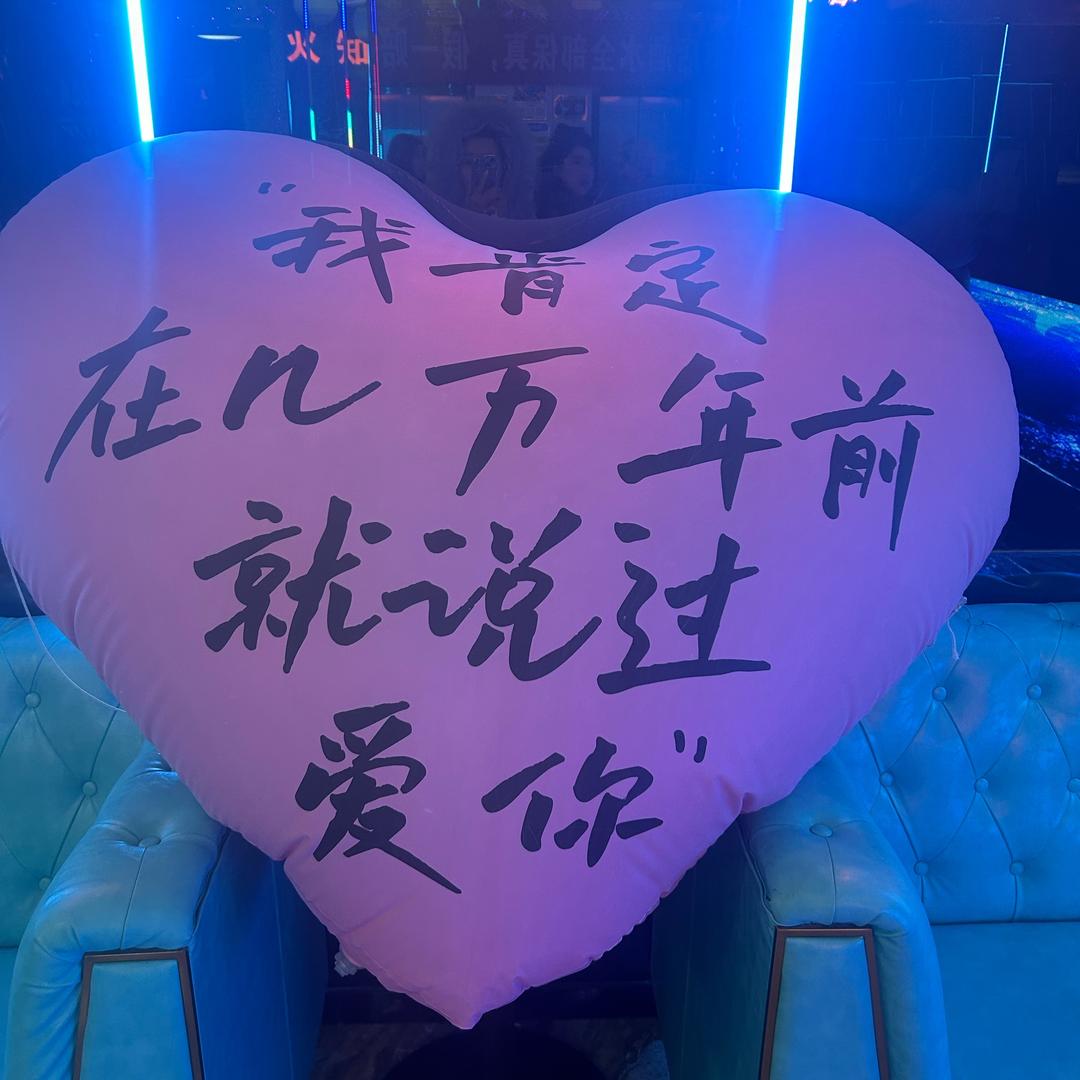 "我肯定
在几万年前
就说过
爱你"